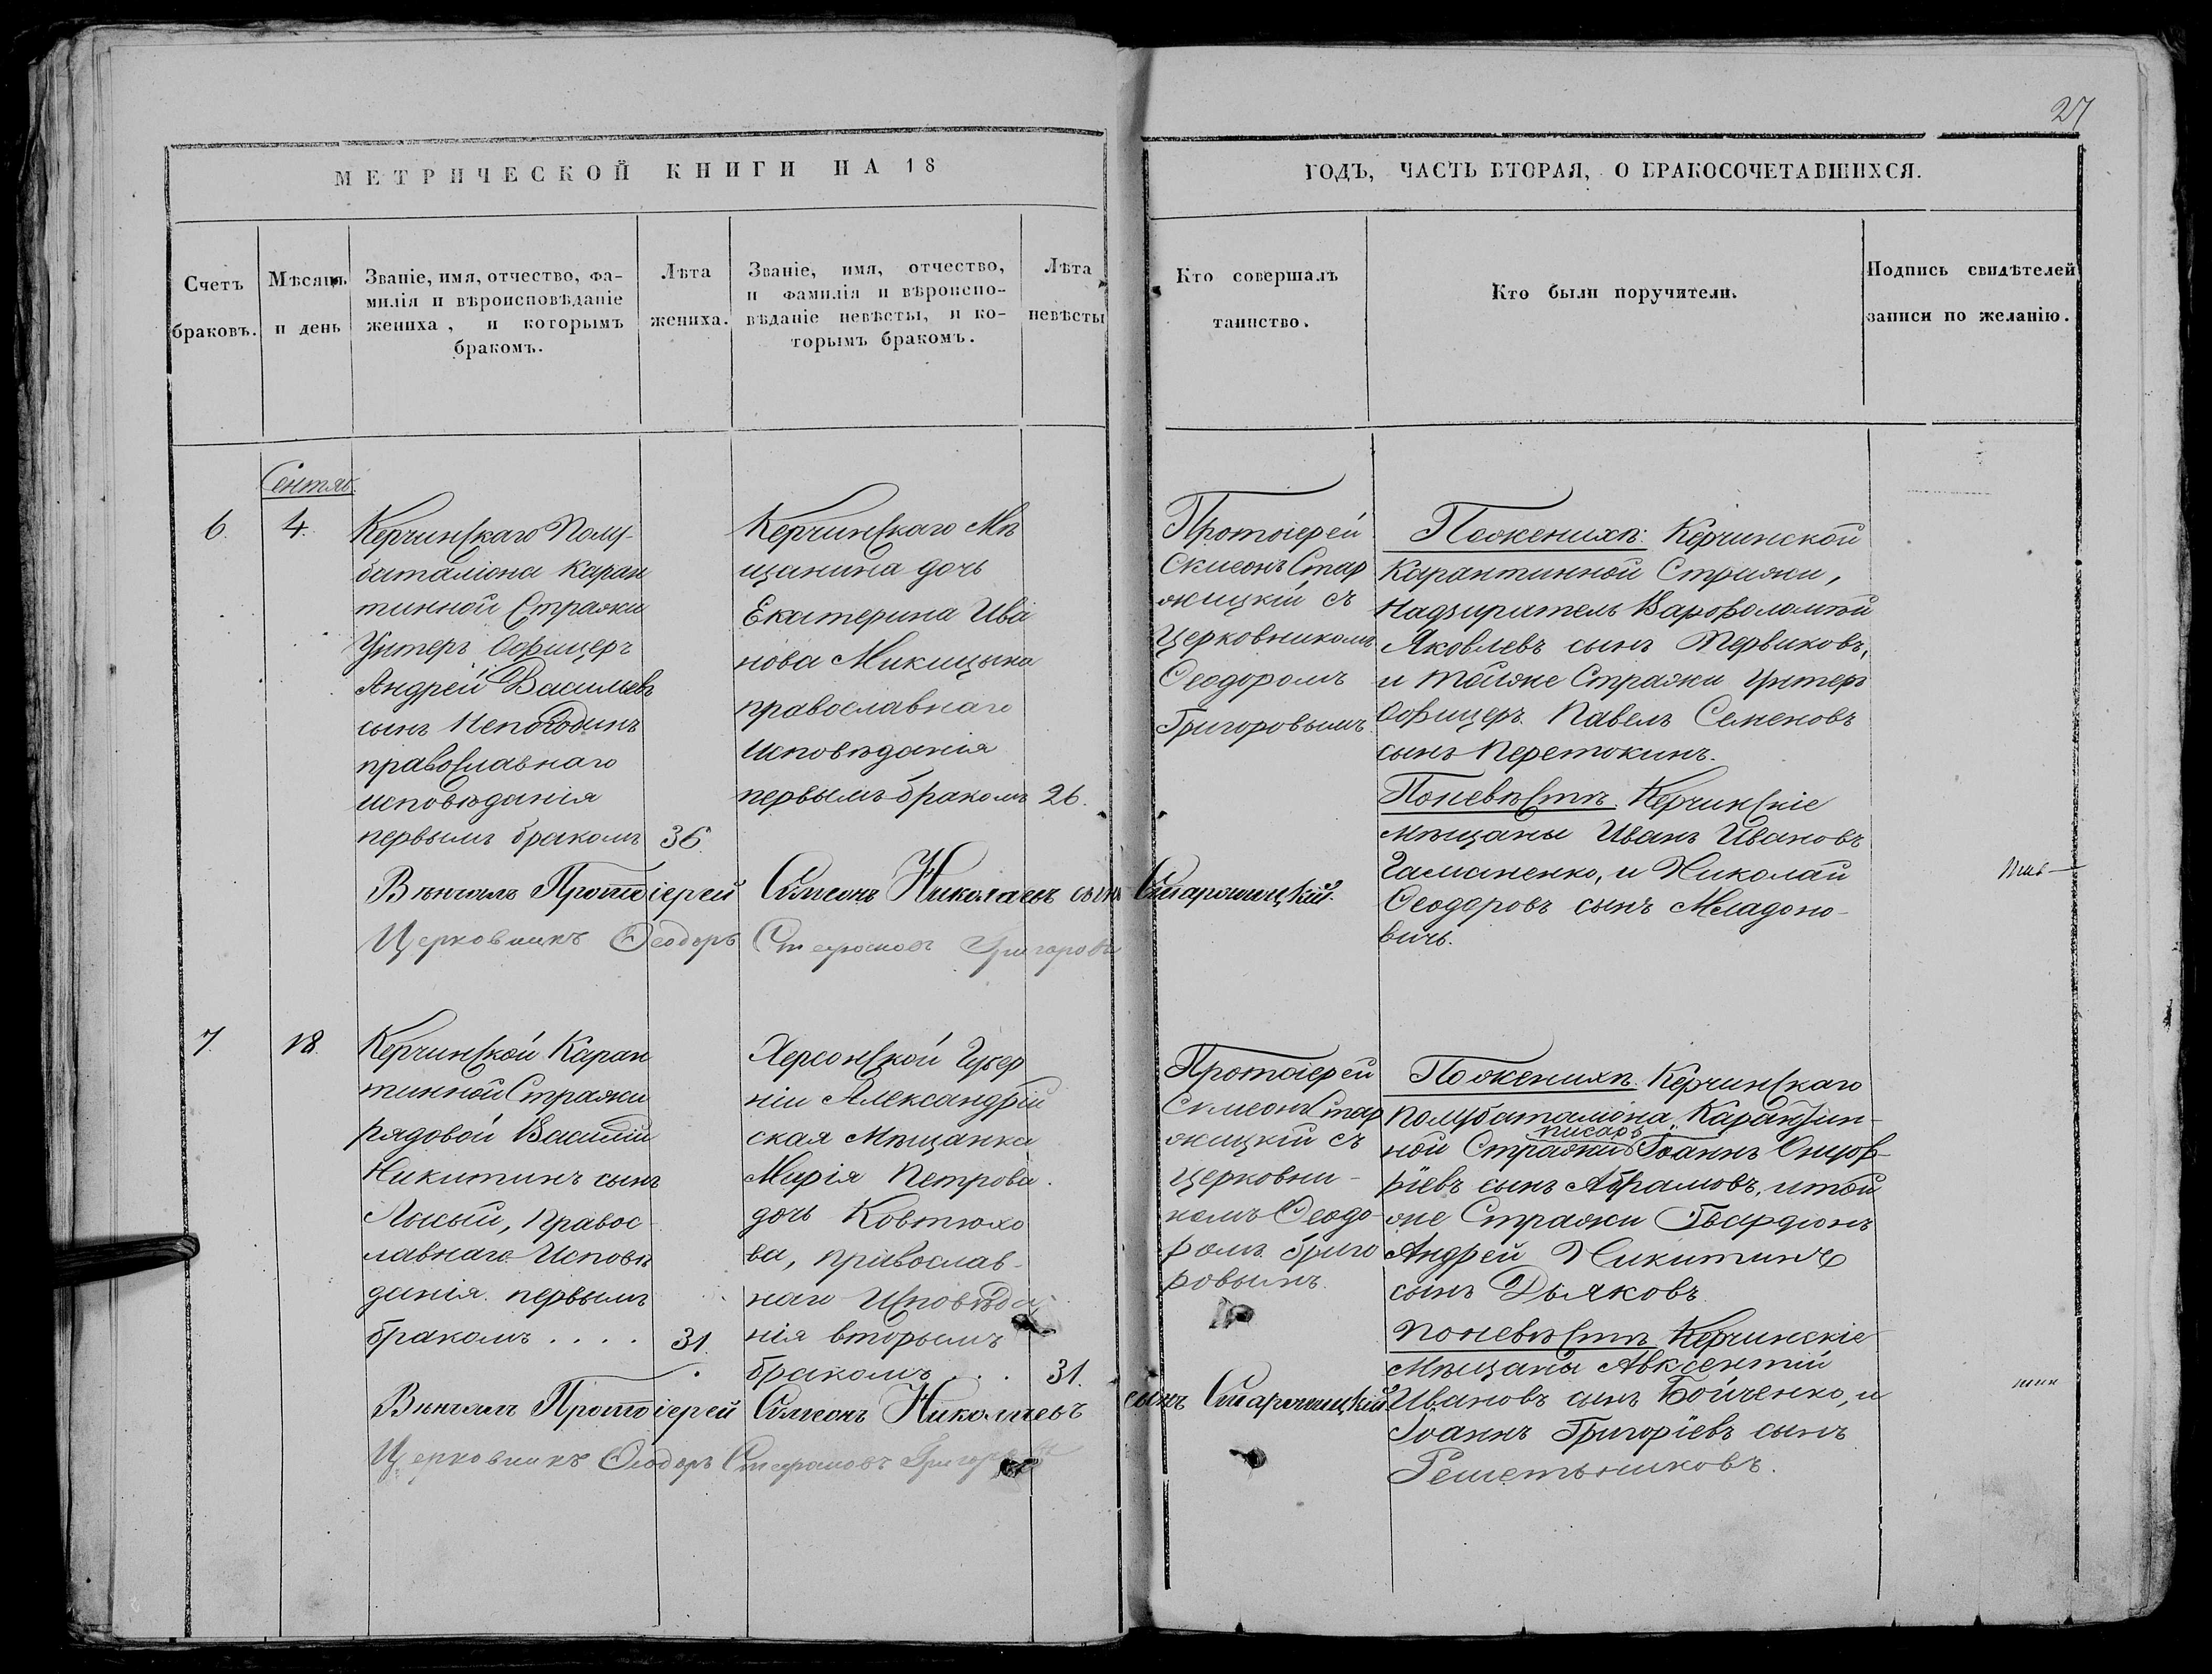 27
МЕТРИЧЕСКОЙ КНИГИ НА 18
ГОДЪ, ЧАСТЬ ВТОРАЯ, О БРАКОСОЧЕТАВШИХСЯ.
Счетъ
браковъ.
Мѣсяцъ
и день
Званіе, имя, отчество, фа-
милія и вѣроисповѣданіе
жениха, и которымъ
бракомъ.
Лѣта
жениха.
Званіе, имя, отчество,
и фамилія и вѣроиспо-
вѣданіе невѣсты, и ко-
торымъ бракомъ.
Лѣта
невѣсты
Кто совершалъ
таинство.
Кто были поручители.
Подпись свидѣтелей
записи по желанію.
Сентяб.
6.
4.
Керчинскаго Полу-
баталіона Каран
тинной Стражи
Унтеръ Офицеръ
Андрей Васильевъ
сынъ Непогодинъ
православнаго
исповѣданія
первымъ бракомъ
36.
Керчинскаго Мѣ
щанина дочь
Екатерина Ива
нова Микицына
православнаго
исповѣданія
первымъ бракомъ
26.
Протоіерей
Симеонъ Стар
жицкій съ
Церковникомъ
Ѳеодоромъ
Григоровымъ.
Поженихѣ: Керчинской
Карантинной Стражи,
Надзиратель Варфоломѣй
Яковлевъ сынъ Первиковъ,
и тойже Стражи Унтеръ
Офицеръ Павелъ Семеновъ
сынъ Перетокинъ.
Поневѣстѣ. Керчинскіе
мѣщаны Иванъ Ивановъ
Гаманенко, и Николай
Ѳеодоровъ сынъ Младоно-
вичь.
Вѣнчалъ Протоіерей Симеонъ Николаевъ сынъ Старжицкій.
Церковникъ Ѳеодоръ Стефановъ Григоровъ
7.
18.
Керчинской Каран
тинной Стражи
рядовой Василій
Никитинъ сынъ
Лысый, Правос-
лавнаго Исповѣ
данія первымъ
бракомъ . . . .
31.
Херсонской Губер
ніи Александрій
ская Мѣщанка
Марія Петрова
дочь Ковтюхо
ва, православ-
наго Исповѣда
нія вторымъ
бракомъ . . .
31.
Протоіерей
Симеонъ Стар
жицкій съ
Церковни-
комъ Ѳеодо-
ромъ Григо
ровымъ.
Поженихѣ. Керчинскаго
полубаталіона Карантин-
писарь
ной Стражи Іоаннъ Онуф-
ріевъ сынъ Абрамовъ, итой
же Стражи Гвардіонъ
Андрей Никитинъ
сынъ Дьяковъ
Поневѣстѣ Керчинскіе
Мѣщаны Авксентій
Ивановъ сынъ Бойченко, и
Іоаннъ Григоріевъ сынъ
Решетьниковъ.
Вѣнчалъ Протоіерей Симеонъ Николаевъ сынъ Старжицкій
Церковникъ Ѳеодоръ Стефановъ Григоровъ